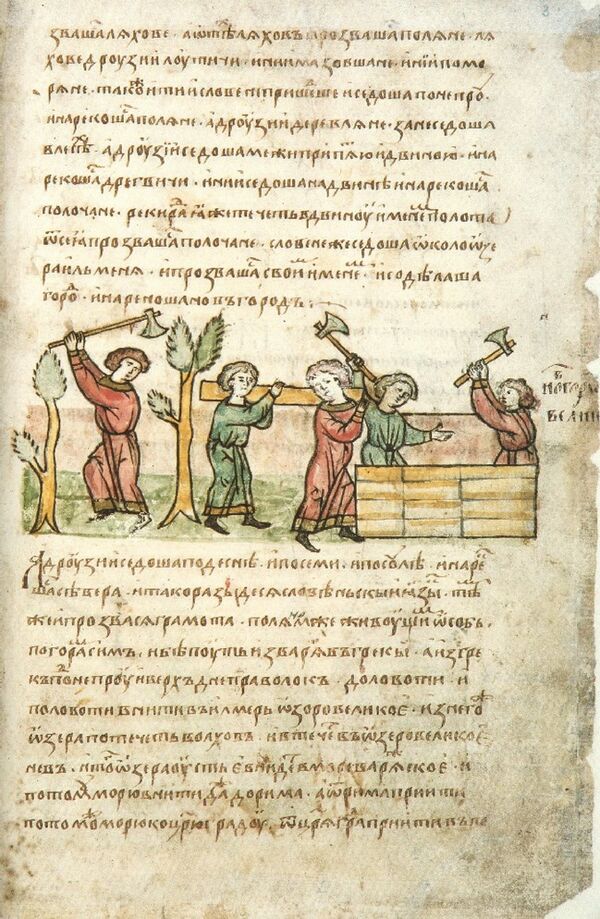 звашаляхове · аѿтѣхляховъ прозвашаполѧне · лѧ
ховедроузиилоутичи · инимазовшане · инїипомо
рѧне · такоитиисловенепришедшеиседошапонепроу ·
инарекошаполѧне · адроузиидеревлѧне · занеседоша
влесѣхъ · адроузїиседошамежиприпѧтьюидвиною · ина
рекошасѧдреговичи · инииседошанадвинѣинарекошасѧ
полочане · рекиради ꙗжетечетьвъдвиноу именемъполота
ѿсеꙗпрозвашасѧполочане · словенежеседошаѡколоѡзе
раильменѧ · ипрозвашасѧсвоимъименемъ · исодѣлаша
городъ · инарекошаиновъгородъ ·
новъгородъ
великии
Адроузииседошаподеснѣ · ипосеми · ипосоулѣ · инаре
шасѧсѣвера · итакоразыдесѧсловѣньскыиꙗзыкъ · тѣм
жеипрозвасѧграмота · полѧномъжеживоущимъѡсобѣ ·
погорамъсимъ · ибѣпоутьизварѧгъвъгрекы · аизгре
къпонепроуиверхъднеправолокъ · доловоти · и
половотивнитивъилмерьѡзоровеликое · изнегоже
ѡзерапотечетьволховъ · ивтечетьвъѡзеровеликое
невъ · итогоѡзераоустьевнидетьвмореварѧжское · и
потомоуморювнитидажедорима · аѿримаприити
потомоужеморюкоцрюградоу · ѿцарѧградаприитивъпо